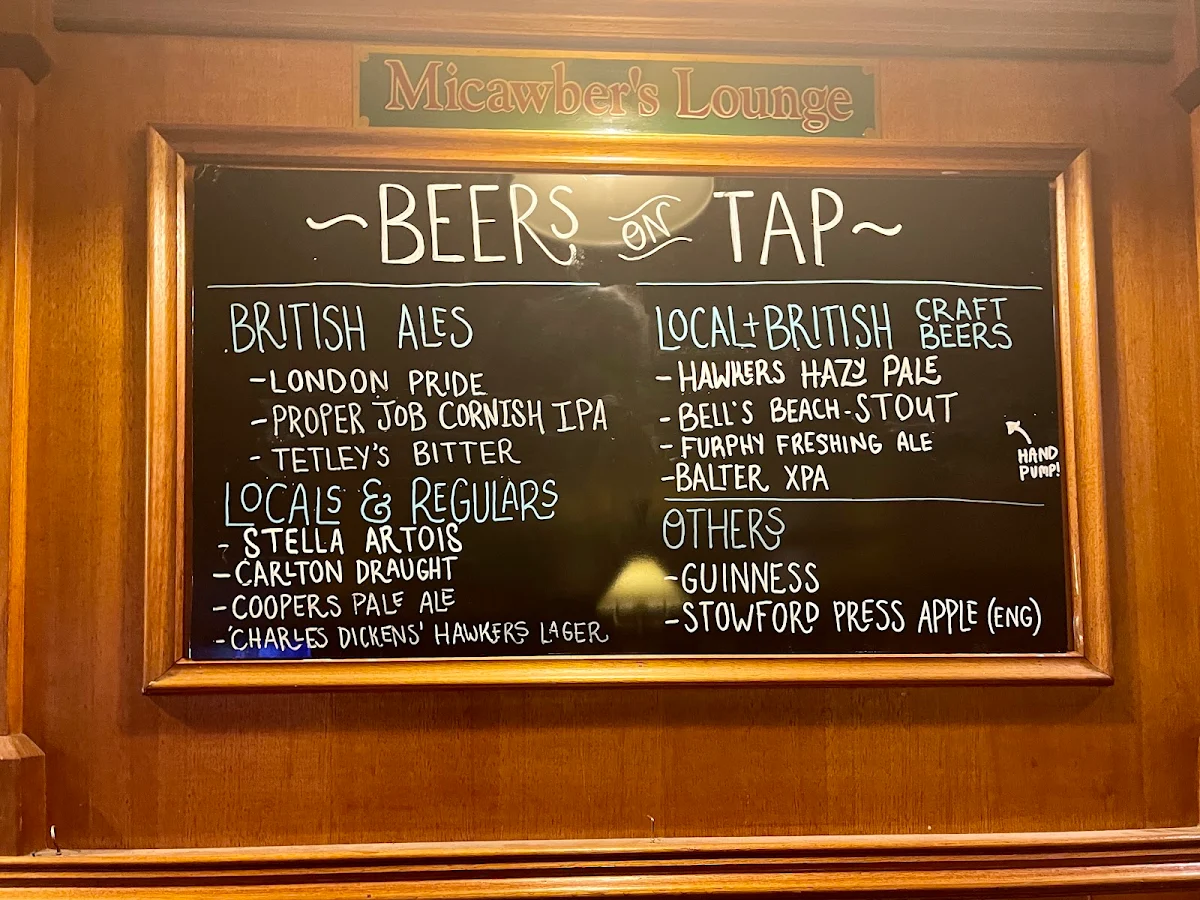 Micawber's Lounge
~BEERS ON TAP~
BRITISH ALES
-LONDON PRIDE
-PROPER JOB CORNISH IPA
-TETLEY'S BITTER
LOCALS & REGULARS
- STELLA ARTOIS
-CARLTON DRAUGHT
-COOPERS PALE ALE
-'CHARLES DICKENS' HAWKERS LAGER
LOCAL+BRITISH CRAFT BEERS
-HAWKERS HAZY PALE
-BELL'S BEACH-STOUT
-FURPHY FRESHING ALE
-BALTER XPA
HAND
PUMP!
OTHERS
-GUINNESS
-STOWFORD PRESS APPLE (ENG)